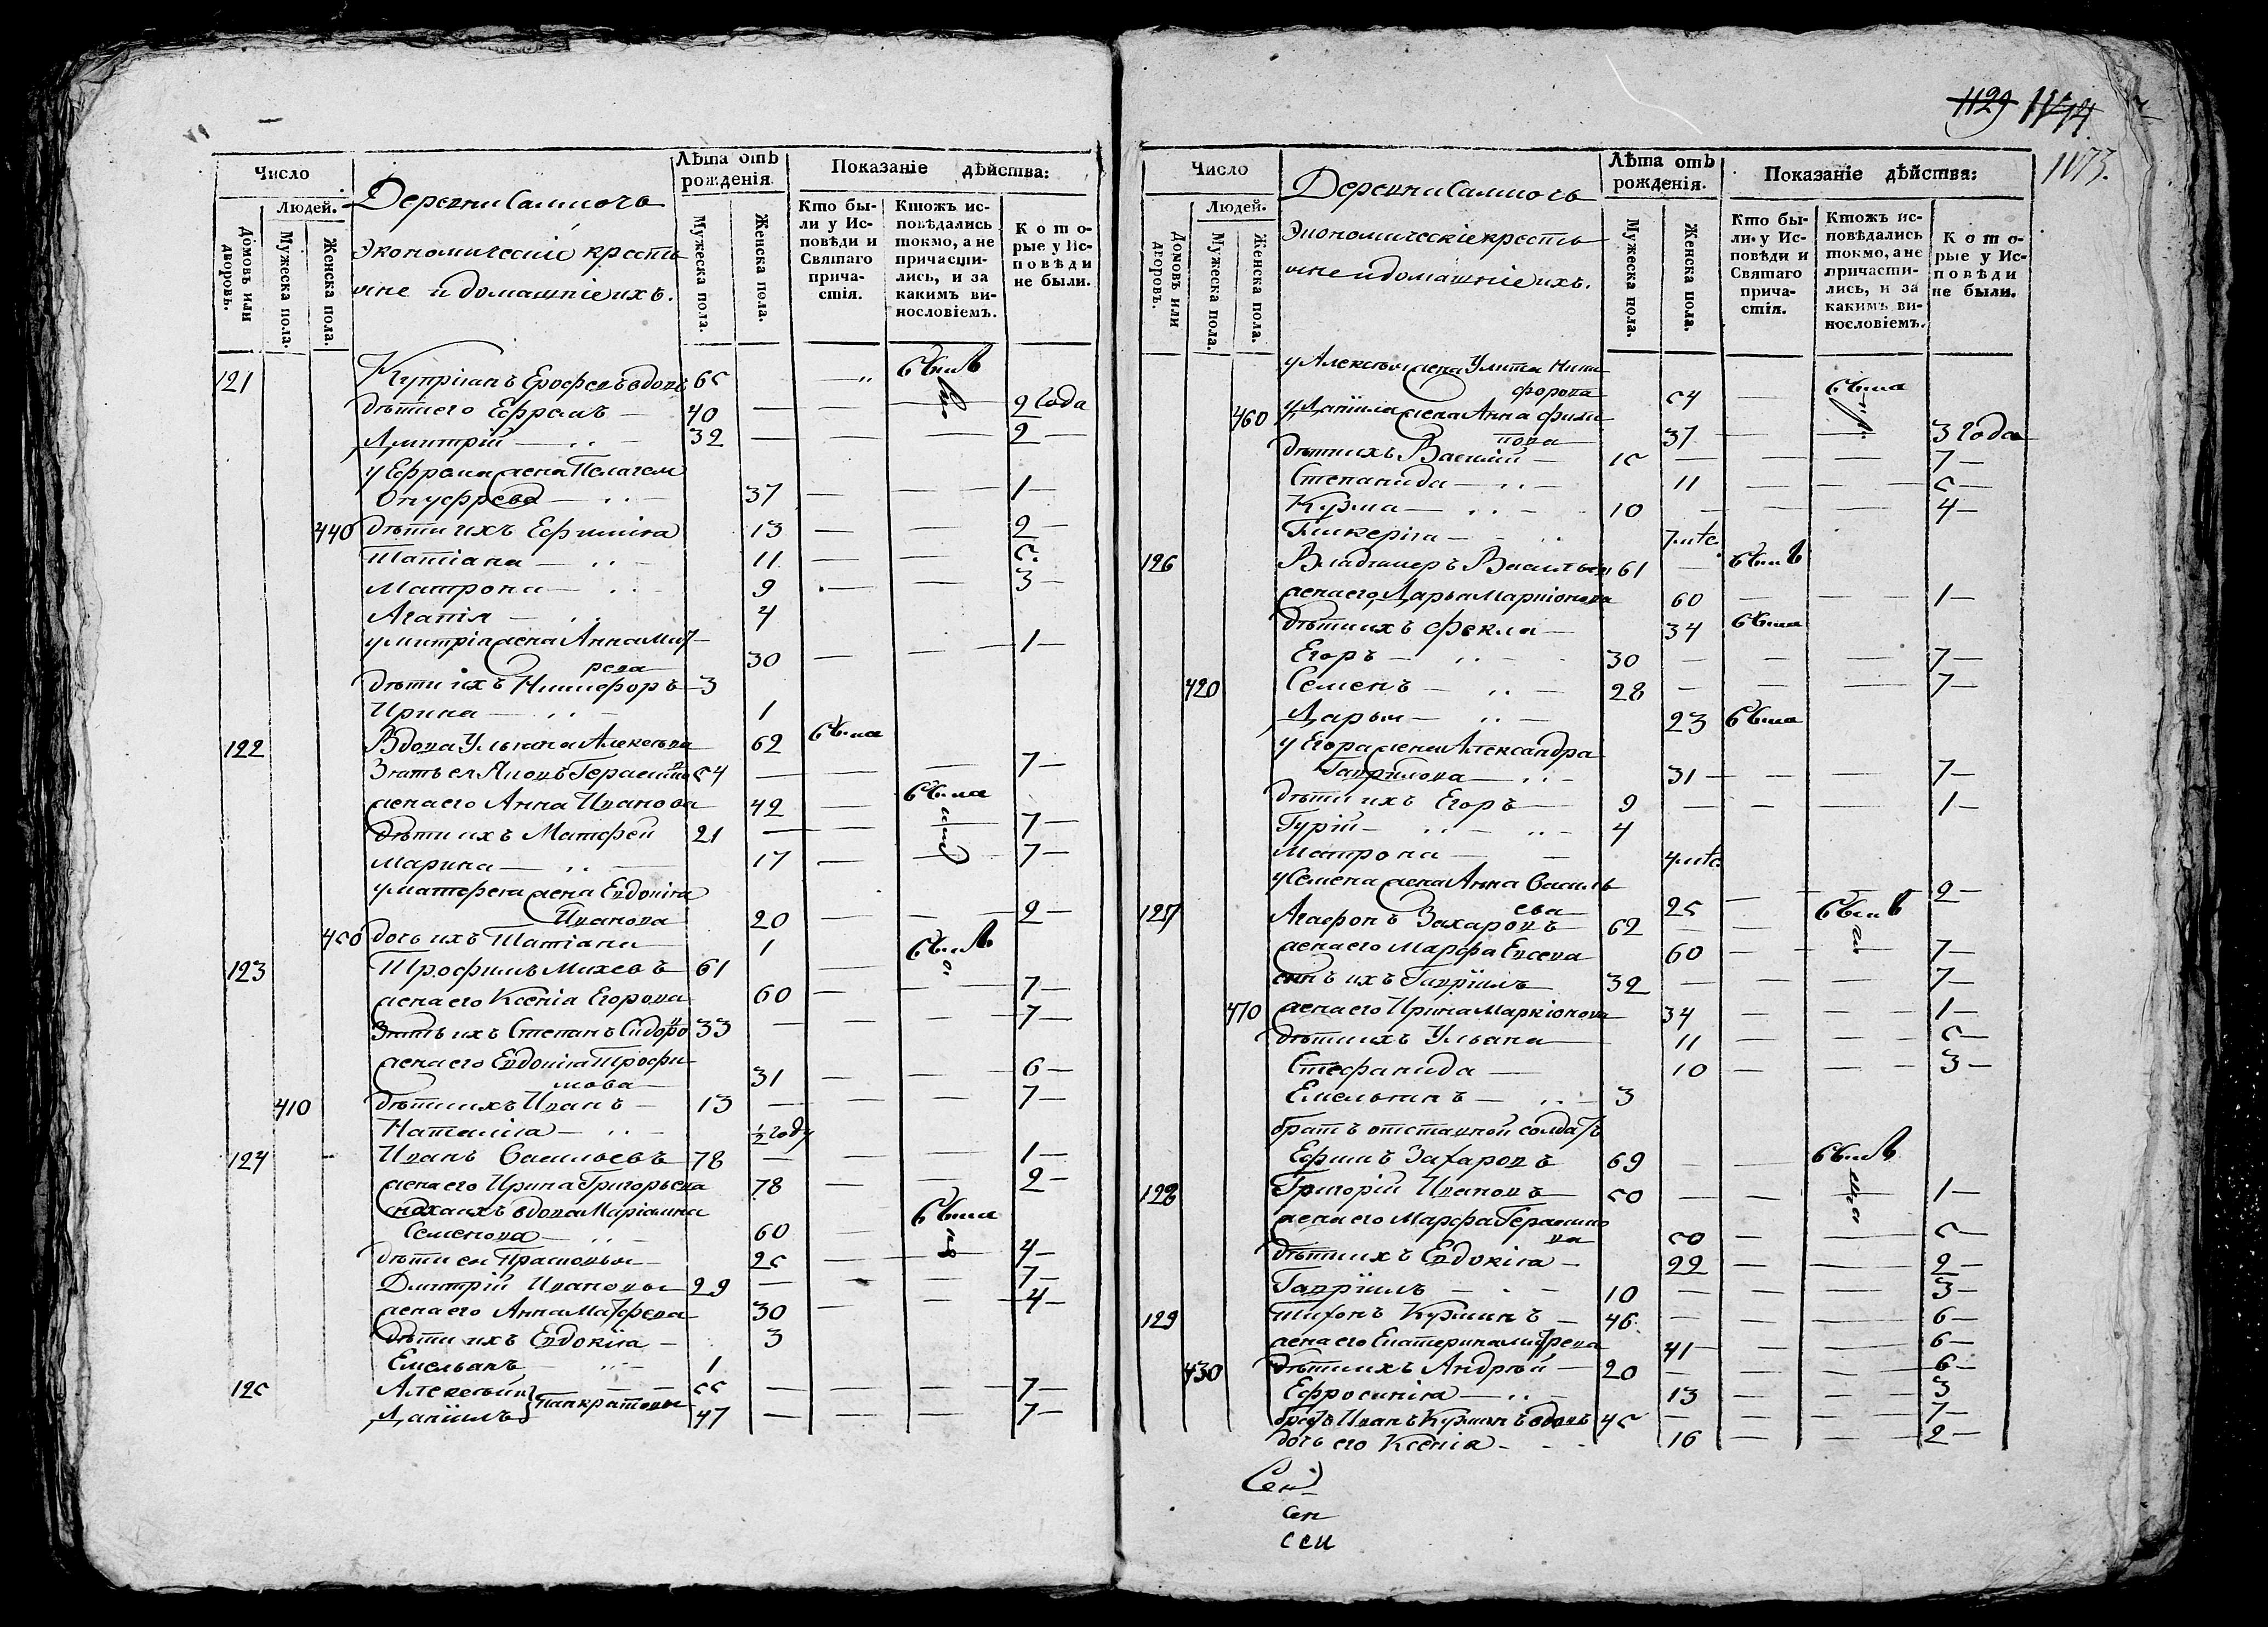 Число
Людей.
Домовъ или дворовъ.
Мужеска пола.
Женска пола.
Деревни
Экономическіе крестья
не и домашніе ихъ.
Лѣта отъ рожденія.
Мужеска пола.
Женска пола.
Показаніе дѣйства:
Кто были у Исповѣди и Святаго причастія.
Ктожъ исповѣдались токмо, а не причастились, и за какимъ винословіемъ.
Которые у Исповѣди не были.
121 Купріянъ Ерофеевъ вдовъ 65 — былъ
дѣти его Ефремъ — 40 — — — 2 года
Дмитрій — 32 — — — 2 —
у Ефрема жена Пелагея
Онуфрева — 37 — — 1 —
440 дѣти ихъ Ефимія 13 — — 2 —
Татіана — 11 — — 5
Матрона — 9 — — 3 —
Агапія — 4
у митрія жена Анна
30 — — 1 —
дѣти ихъ Никифоръ — 3
Ирина — 1
122 Вдова Ульяна Алексѣева 62 была
Зять ея Яковъ Герасимовъ 54 — — — 7 —
жена его Анна Иванова 42 — была
дѣти ихъ Матфей 21 — — — 7 —
Марина — 17 — — 7 —
у матфея жена Евдокія
Иванова 20 — — 2 —
450 дочь ихъ Татіана 1
123 Трофимъ Михевъ 61 — былъ
жена его Ксенія Егорова 60 — — 7 —
Зять ихъ Степанъ Сидоровъ 33 — — — 7 —
жена его Евдокія Трофи
мова — 31 — — 6 —
410 дѣти ихъ Иванъ — 13 — — — 7 —
Наталія — ½ году
124 Иванъ Васильевъ 78 — — — 1 —
жена его Ирина Григорьева 78 — — 2 —
сноха ихъ вдова Маріамна
Семенова — 60 — была
дѣти ея Прасковья — 25 — — 4 —
Дмитрій Ивановы 29 — — — 7 —
жена его Анна Матфева 30 — — 4 —
дѣти ихъ Евдокія — 3
Емельянъ — 1
125 Алексѣй 55 — — — 7 —
Панкратовы
Даніилъ 47 — — — 7 —
1129
1173.
Число
Людей.
Домовъ или дворовъ.
Мужеска пола.
Женска пола.
Деревни
Экономическіе крестья
не и домашніе ихъ.
Лѣта отъ рожденія.
Мужеска пола.
Женска пола.
Показаніе дѣйства:
Кто были у Исповѣди и Святаго причастія.
Ктожъ исповѣдались токмо, а не причастились, и за какимъ винословіемъ.
Которые у Исповѣди не были.
у Алексѣя жена Улита Ники
форова 54 — была
460 у Даніила жена Анна Фили
пова 37 — — 3 года
дѣти ихъ Василій — 15 — — — 7 —
Степанида — 11 — — 5 —
Кузма — 10 — — — 4 —
Гликерія — 7 мѣс.
126 Владимеръ Васильев 61 — былъ
жена его Дарья Маркіонова 60 — — 1 —
дѣти ихъ Фекла — 34 была
Егоръ — 30 — — — 7 —
420 Семенъ — 28 — — — 7 —
Дарья — 23 была
у Егора жена Александра
Гаврилова — 31 — — — 7 —
дѣти ихъ Егоръ — 9 — — — 1 —
Гурій — 4
Матрона — 4 мѣс.
у Семена жена Анна Василь
ева 25 — — 2 —
127 Агафонъ Захаровъ 62 — — былъ
жена его Марфа Евсева 60 — — 7 —
сынъ ихъ Гавріилъ 32 — — — 7 —
470 жена его Ирина Маркіонова 34 — — 1 —
дѣти ихъ Ульяна 11 — — 5 —
Стефанида — 10 — — 3 —
Емельянъ — 3
братъ отставной солдатъ
Ефимъ Захаровъ 69 — — былъ
128 Григорій Ивановъ 50 — — — 1 —
жена его Марфа Герасимо
ва 50 — — 5 —
дѣти ихъ Евдокія — 22 — — 2 —
Гавріилъ — 10 — — — 3 —
129 Тихонъ Кузминъ — 46 — — — 6 —
жена его Екатерина 41 — — 6 —
430 дѣти ихъ Андрей — 20 — — — 6 —
Ефросинія — 13 — — 3
братъ Иванъ Кузминъ вдовъ 45 — — — 7 —
дочь его Ксенія — 16 — — 2 —